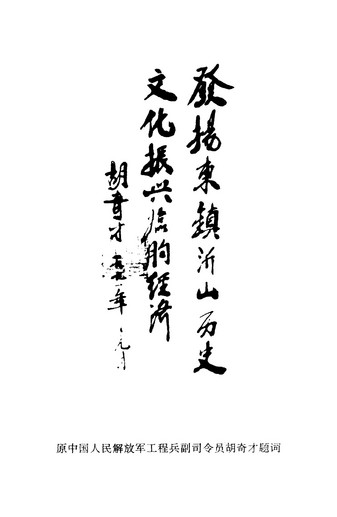 發揚東鎮沂山历史
文化振兴临朐經济
胡奇才 年 元月
原中国人民解放军工程兵副司令员胡奇才题词